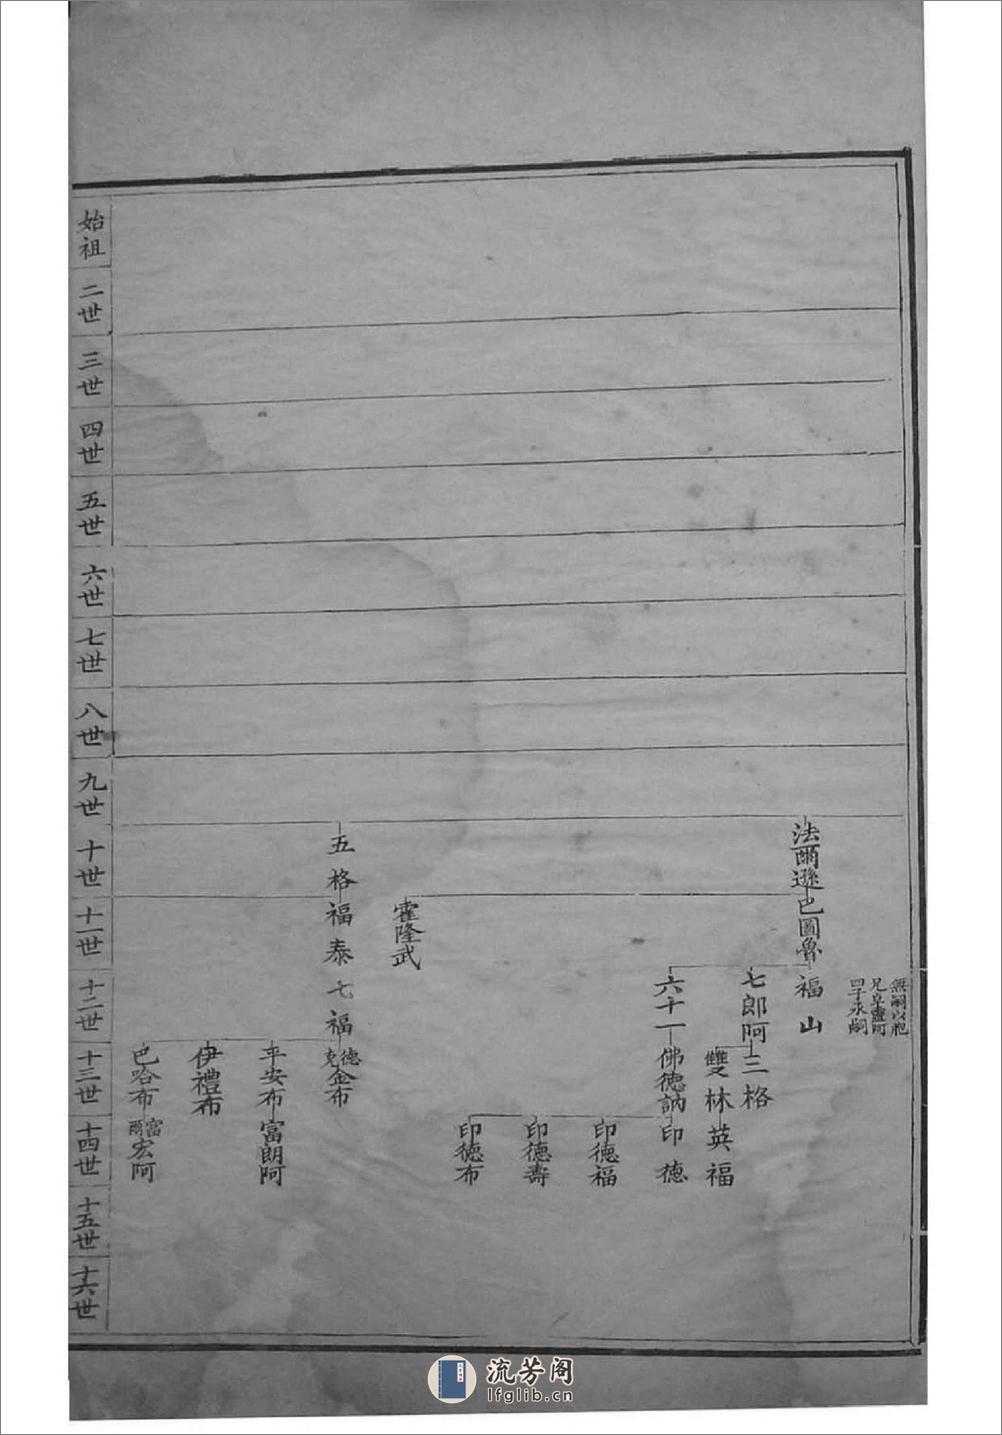 無嗣以胞
兄阜靈阿
四子承嗣
法爾遜巴圖魯
福山
七郎阿
三格
雙林
英福
六十一
佛德訥
印德
印德福
印德壽
印德布
霍隆武
五格
福泰
七福
德克金布
平安布
富朗阿
伊禮布
巴哈布
富爾宏阿
始祖
二世
三世
四世
五世
六世
七世
八世
九世
十世
十一世
十二世
十三世
十四世
十五世
十六世
流芳阁
lfglib.cn